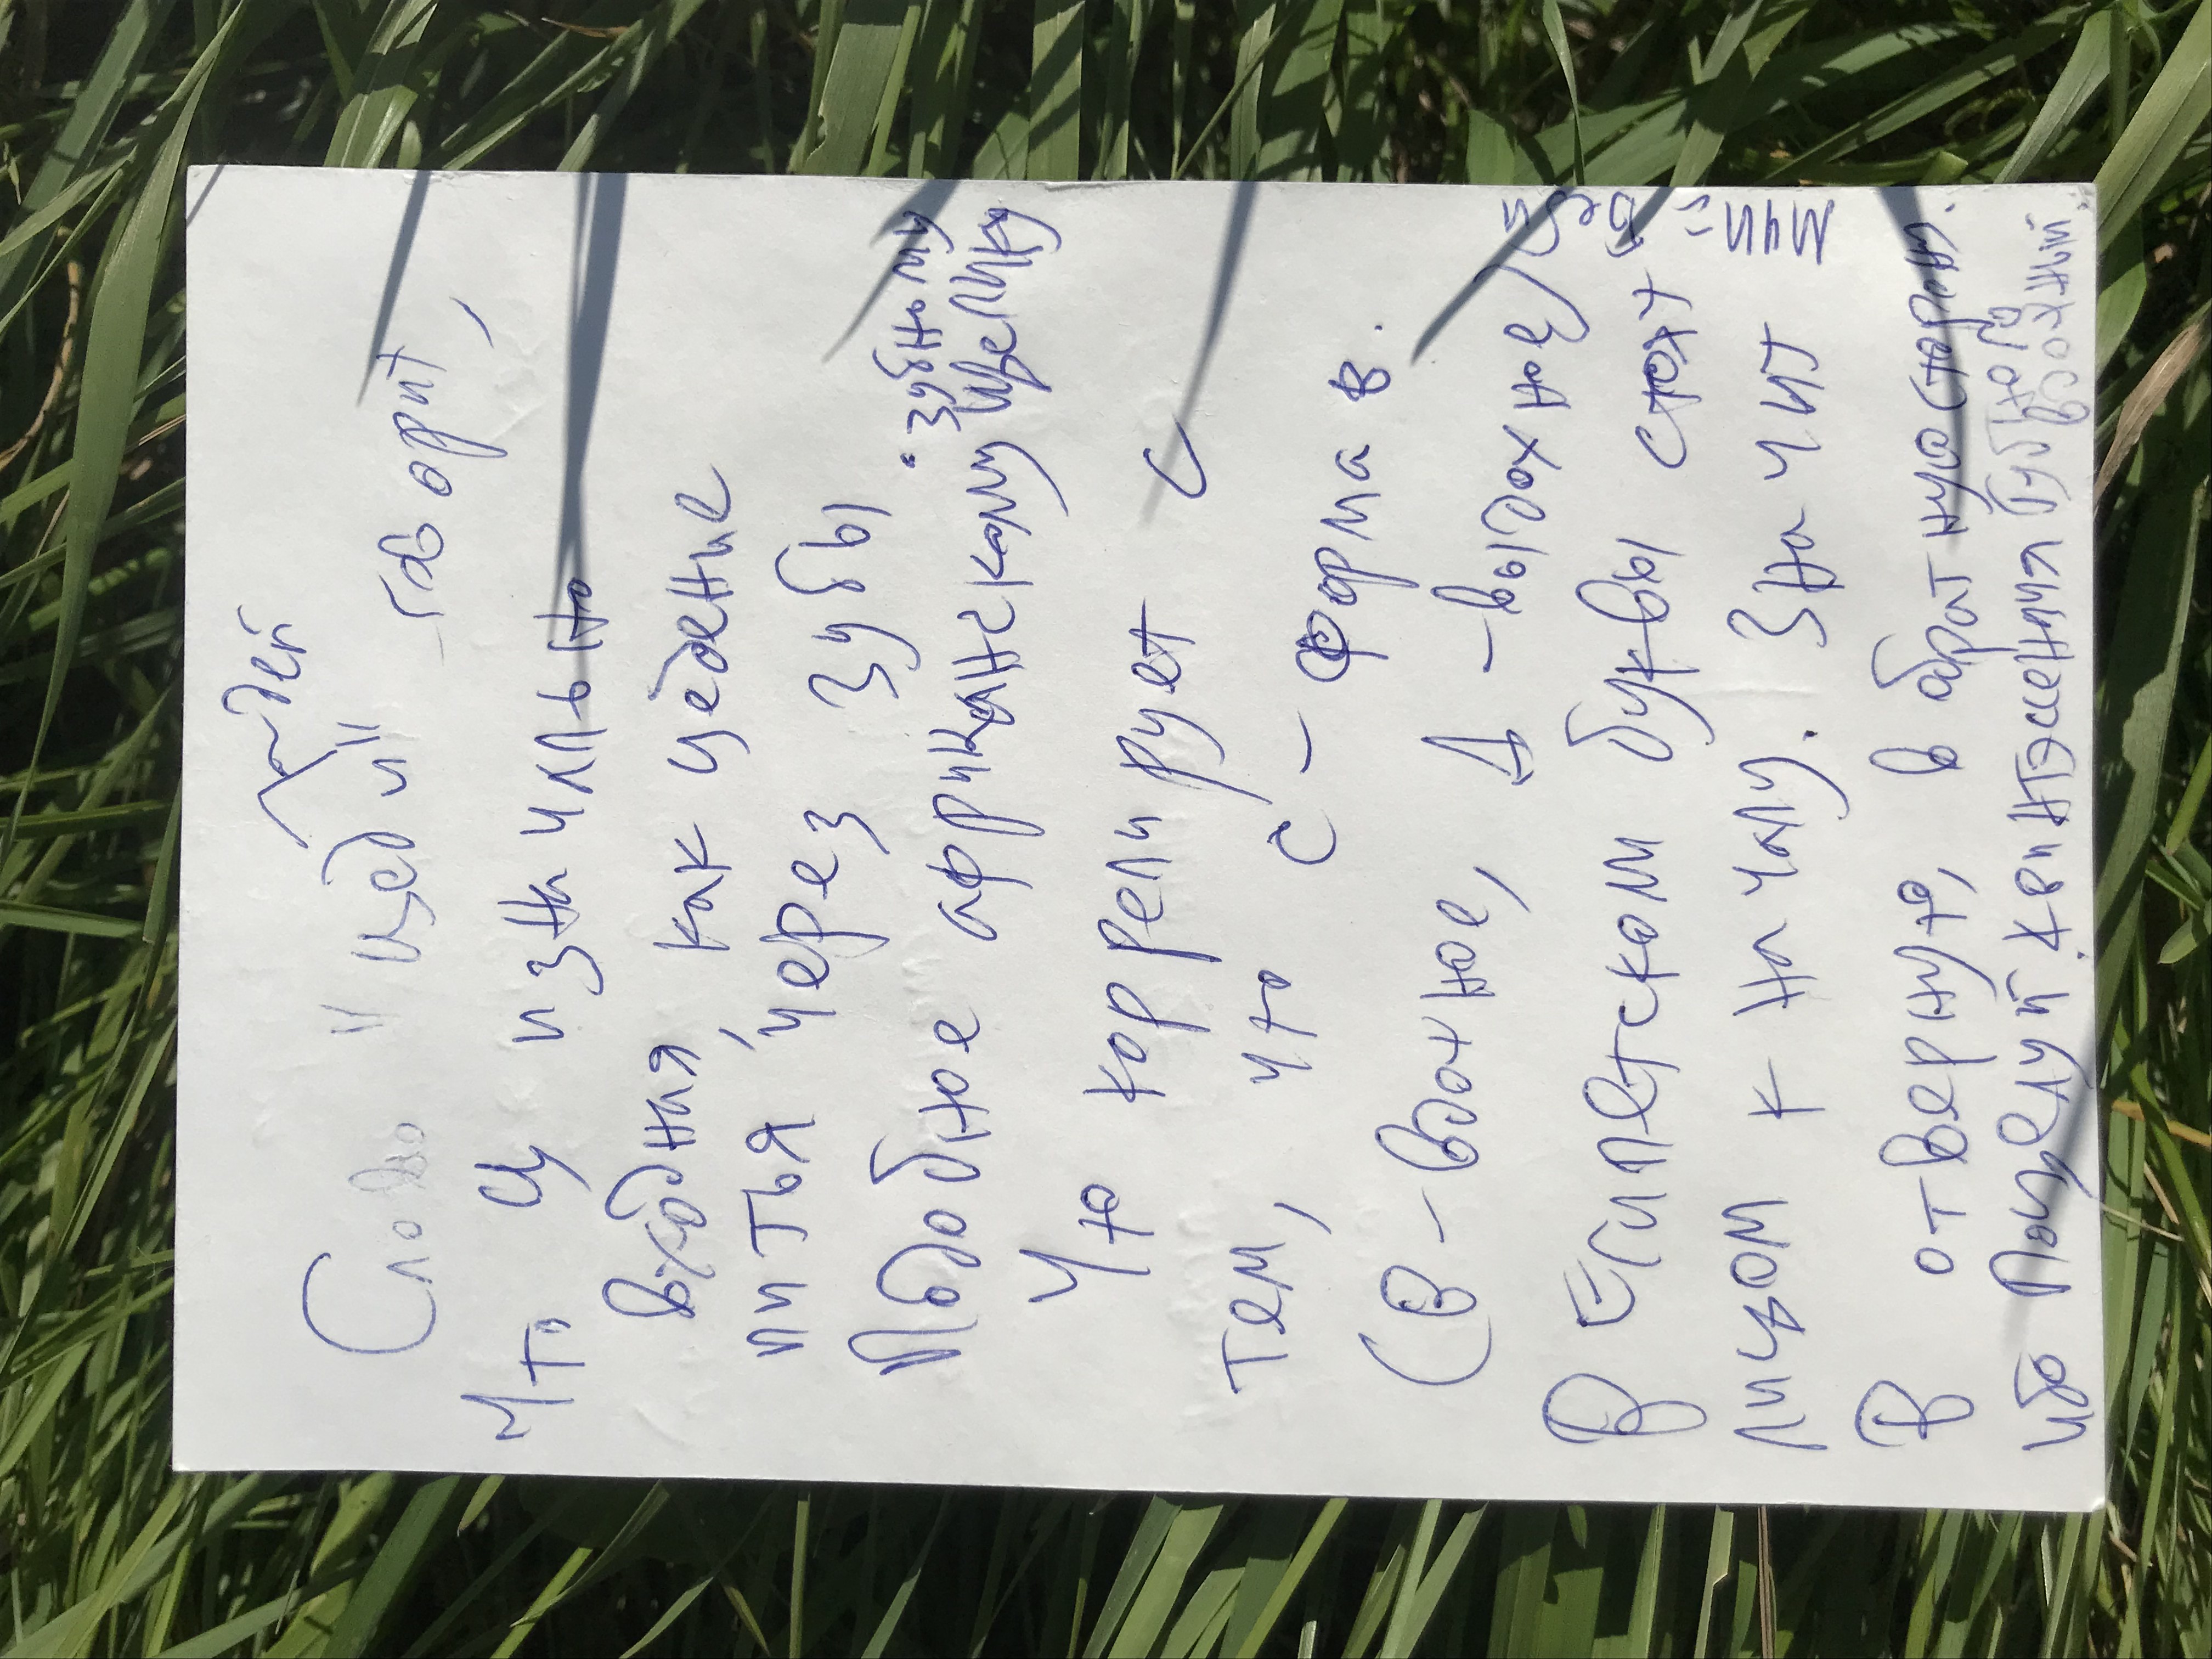 Слово "цеди" говорит,
что Ц изначально
входная, как цедение
питья через зубы.
Подобное африканскому зубному
щелчку
Что коррелирует с
тем, что с - форма в.
(В - вдохное, Д - выдохное)
В Египетском буквы стоят
лицом к началу. Значит
В отвернуто, в обратную сторону.
ибо Поцелуй. квинтэссенция Губного
вдохный.